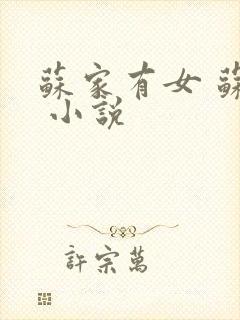 蘇家有女 蘇
小說
許宗萬